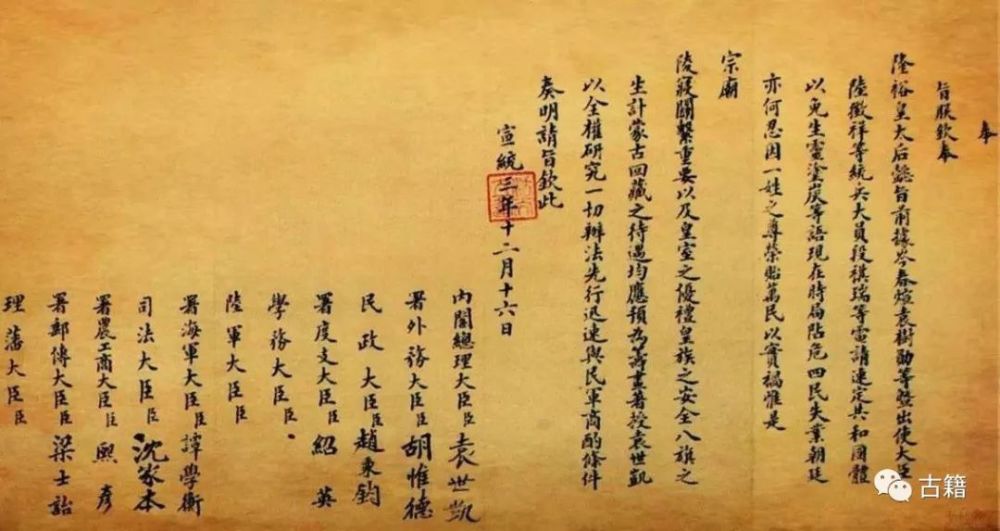 奉
旨朕欽奉
隆裕皇太后懿旨前據岑春煊袁樹勛等暨出使大臣
陸徵祥等統兵大員段祺瑞等電請速定共和國體
以免生靈塗炭等語現在時局阽危四民失業朝廷
亦何忍因一姓之尊榮貽萬民以實禍惟是
宗廟
陵寢關繫重要以及皇室之優禮皇族之安全八旗之
生計蒙古回藏之待遇均應預為籌畫著授袁世凱
以全權研究一切辦法先行迅速與民軍商酌條件
奏明請旨欽此
宣統三年十二月十六日
內閣總理大臣臣袁世凱
署外務大臣臣胡惟德
民政大臣臣趙秉鈞
署度支大臣臣紹英
學務大臣臣
陸軍大臣臣
署海軍大臣臣譚學衡
司法大臣臣沈家本
署農工商大臣臣熙彥
署郵傳大臣臣梁士詒
理藩大臣臣
古籍